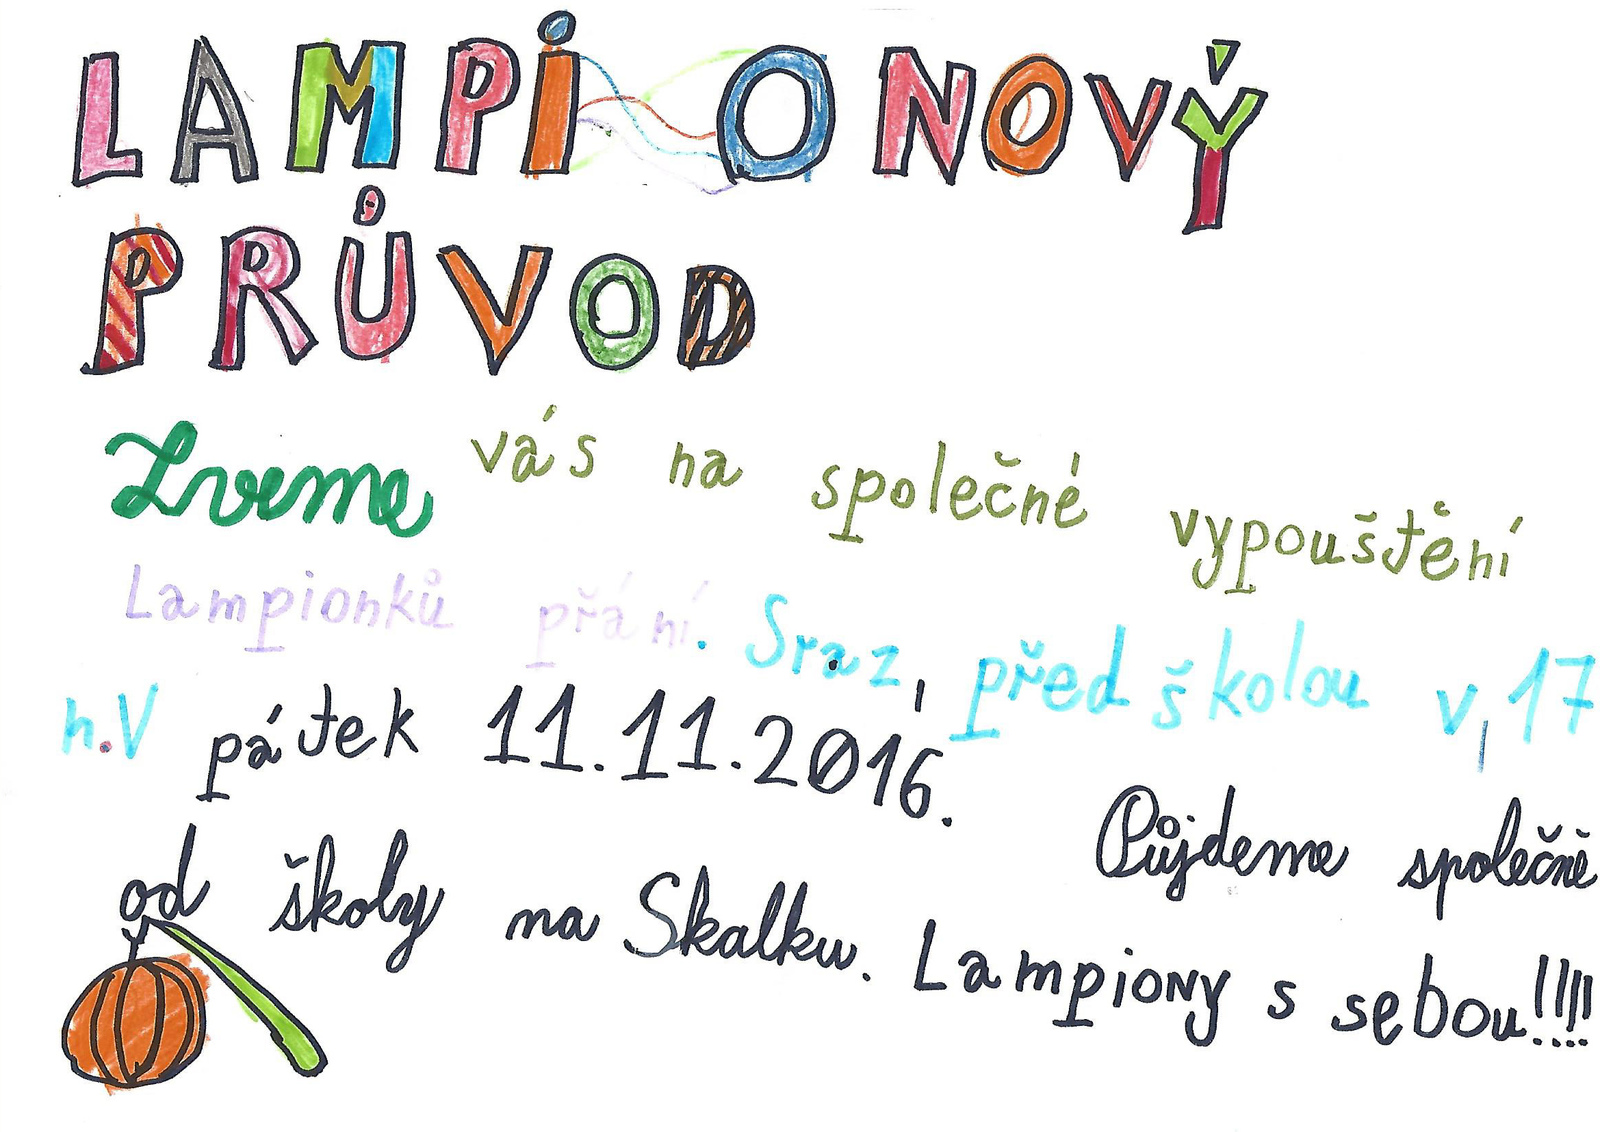 LAMPiONOVÝ
PRŮVOD
Zveme vás na společné vypouštění
Lampionků přání. Sraz, před školou v, 17
h.V pátek 11.11.2016.
Půjdeme společně
od školy na Skalku. Lampiony s sebou!!!!